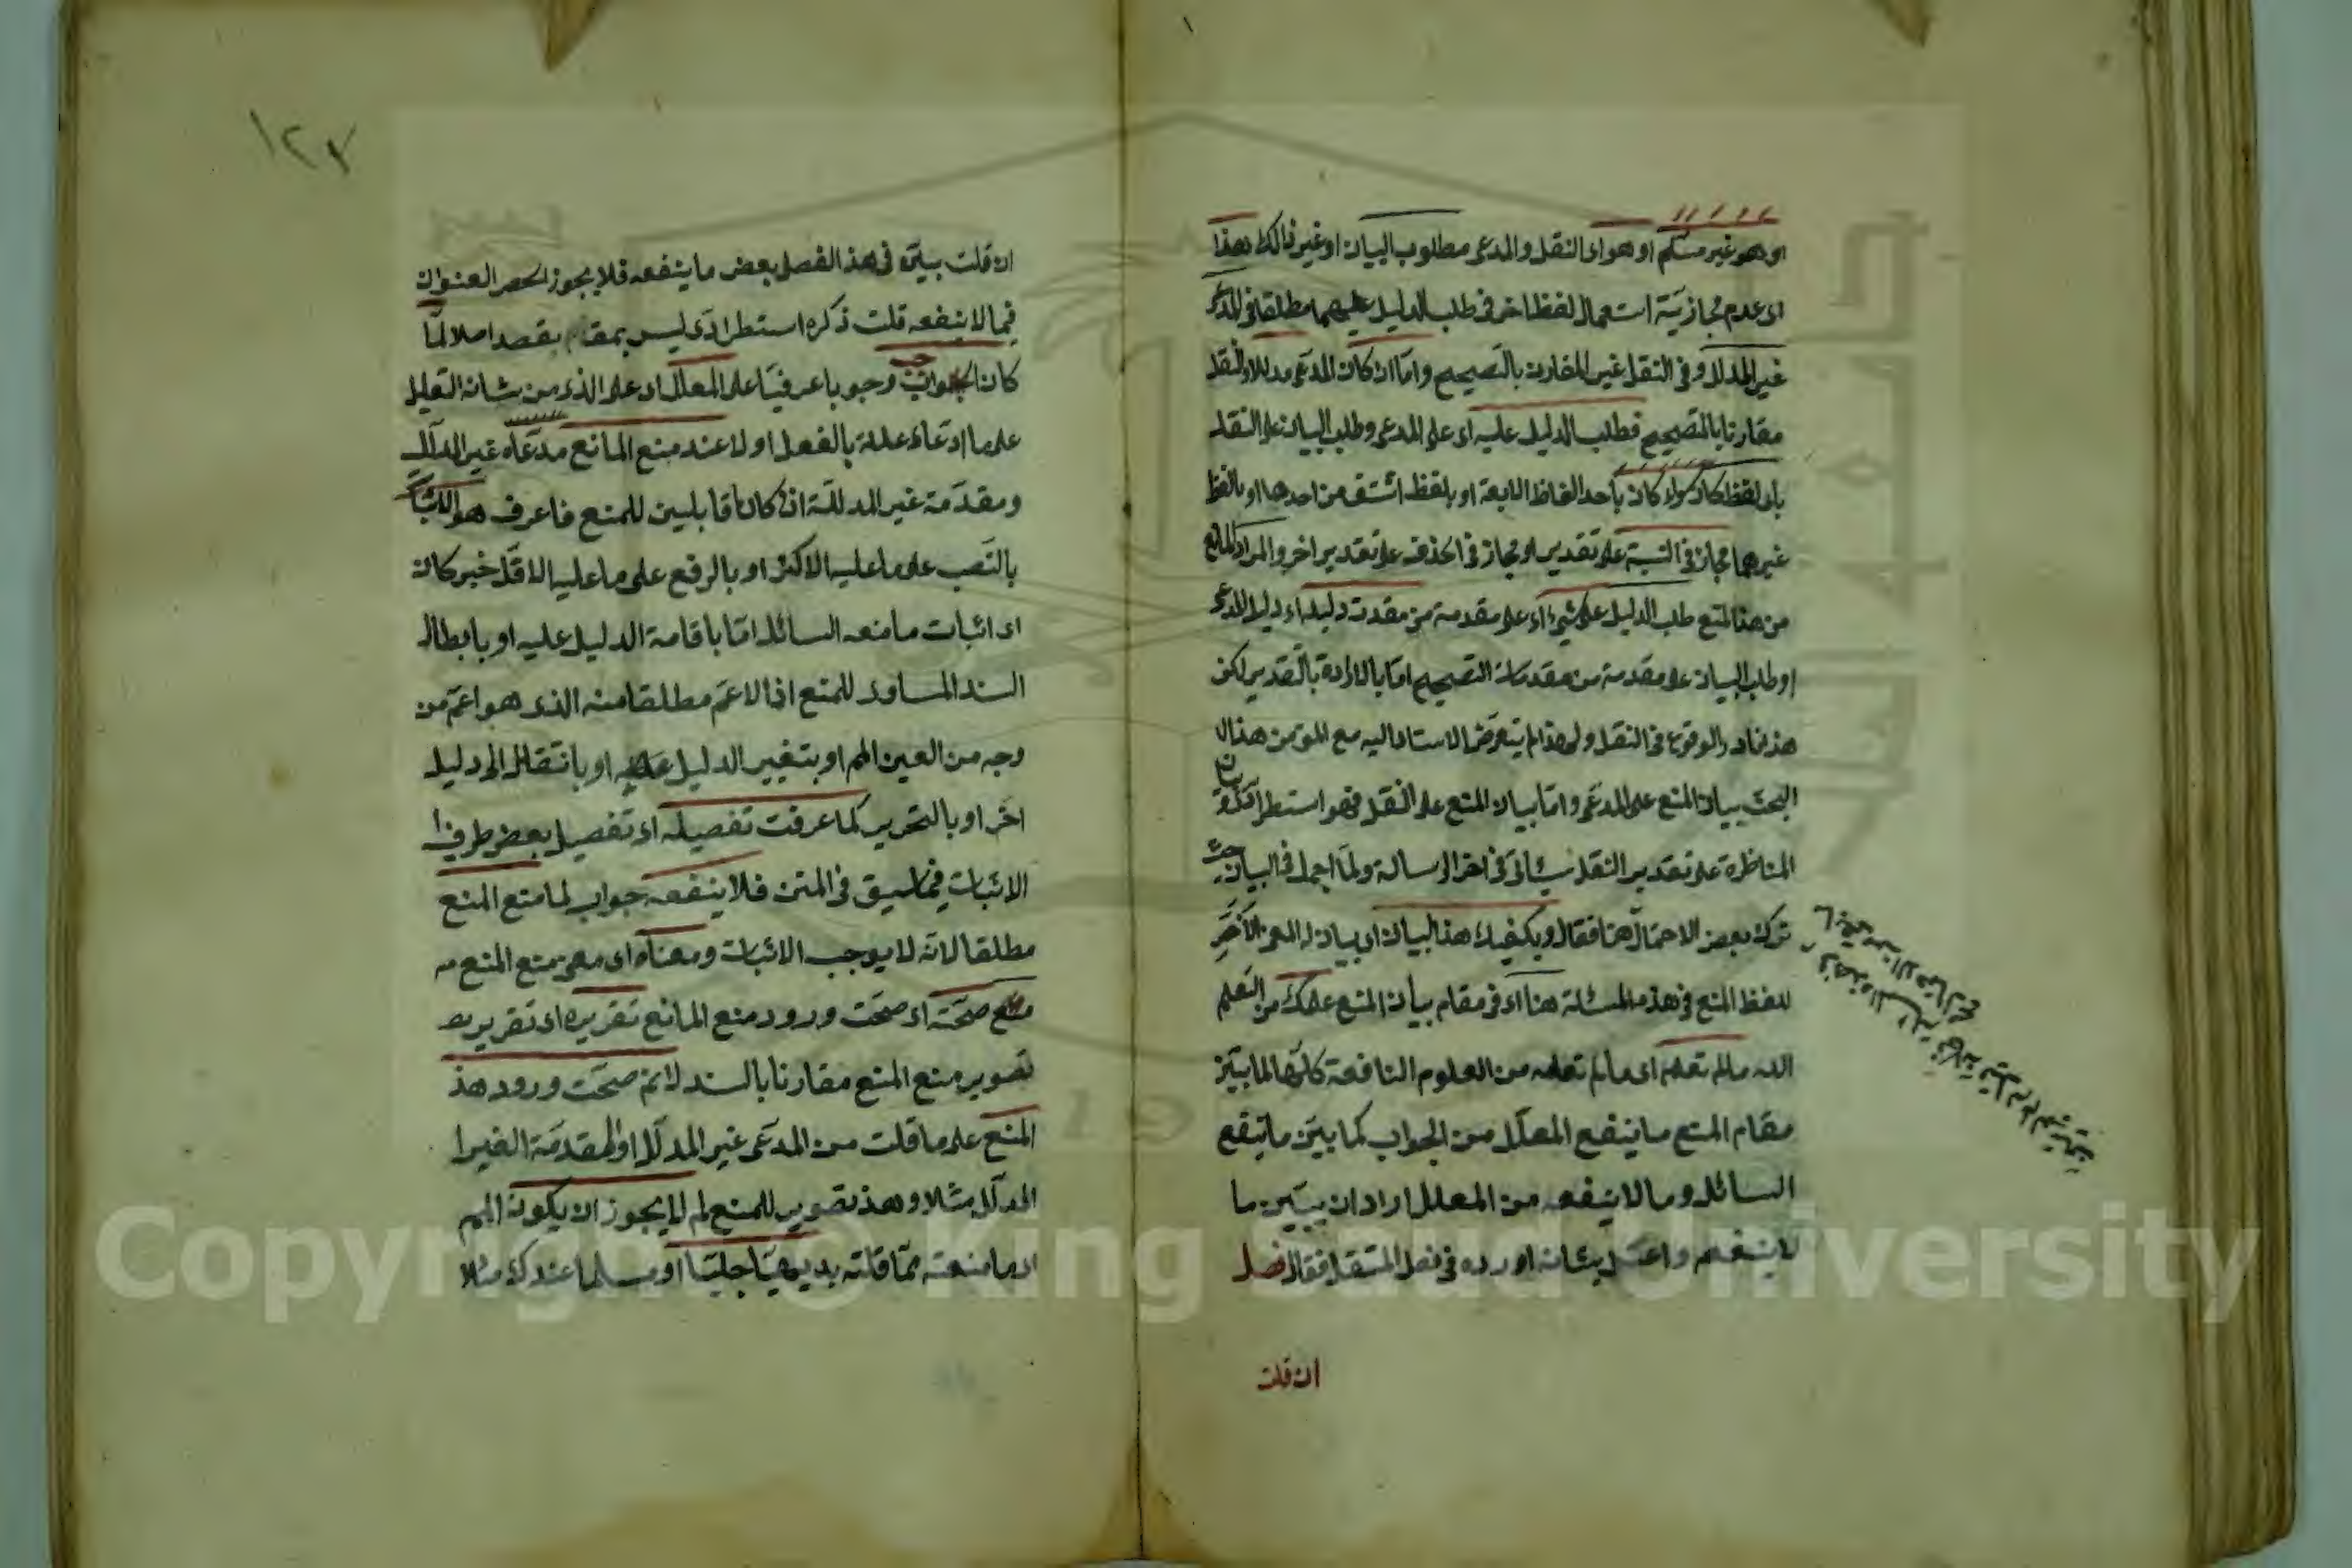 او هو غير مسلم او هو اى النقل والمدعى مطلوب البيان او غير ذالك هذا
اى عدم مجازية استعمال لفظ اخر فى طلب الدليل عليهما مطلقا فى المدعى
غير المدلل وفى النقل غير المقارن بالتصحيح واما ان كان المدعى مدللا والنقل
مقارنا بالتصحيح فطلب الدليل عليه اى على المدعى وطلب البيان على النقل
باى لفظ كان سواء كان باحد الفاظ الاربعة او بلفظ اشتق من احدها او بالفظ
غيرهما مجاز فى النسبة على تقدير او مجاز فى الحذف على تقدير اخر والمراد
من هذا المنع طلب الدليل على شىء اى على مقدمة من مقدمت دليله اى دليل المدعى
او طلب البيان على مقدمة من مقدمات التصحيح اما بالارادة بالتقدير لكن
هذ نادر الوقوع فى النقل ولهذا لم يتعرض الاستاد اليه مع المؤمن هذ ال
البحث بيان المنع على المدعى واما بيان المنع على النقل فهو استطرا
المناظرة على تقدير النقل سيأتى فى اخر الرسالة ولما اجمل فى البيان حيث
ترك بعض الاحتمال هنا فقال ويكفيك هذ البيان اى بيان المعنى الاخر
للفظ المنع فى هذه المسئلة هنا اى فى مقام بيان المنع علمك من التعلم
الله مالم تعلم اى مالم تعلمه من العلوم النافعة كلها لما بين
مقام المنع ما ينفع المعلل من الجواب كما بين ما ينفع
السائل وما لا ينفعه من المعلل اراد ان يبين ما
لا ينفعه واعتنى بشانه اورده فى فصل المستقل فقال فصل
ان قلت
١٢٧
ان قلت بينه فى هذ الفصل بعض ما ينفعه فلا يجوز الحصر العنوان
فيما لا ينفعه قلت ذكره استطرادى ليس بمقام بقصد اصلا لما
كان الجواب وجوبا عرفيا على المعلل اى على الذى من شانه التعليل
على ما ادعاه علله بالفعل او لا عند منع المانع مدعاه غير المدلل
ومقدمة غير المدللة ان كانا قابلين للمنع فاعرف هو الاثبات
بالنصب على ما عليه الاكثر او بالرفع على ما عليه الاقل خبر كان
اى اثبات ما منعه السائل اما باقامة الدليل عليه او بابطال
السند المساوى للمنع اذ الاعم مطلقا منه الذى هو اعم من
وجه من العين المم او بتغيير الدليل عليه او بانتقال الى دليل
اخر او بالتحرير كما عرفت تفصيله اى تفصيل بعض طرق ا
الاثبات فيما سبق فى المتن فلا ينفعه جواب لما منع المنع
مطلقا لانه لا يوجب الاثبات ومعناه اى معنى منع المنع
منع صحته اى صحت ورود منع المانع تقريره اى تقرير
تصوير منع المنع مقارنا بالسند لانم صحت ورود هذ
المنع على ما قلت من المدعى غير المدلل او المقدمة الغير ا
المدلل مثلا وهذ تصوير للمنع لم لا يجوز ان يكون المم
اى ما منعته مما قلته بديهيا جليا او مسلما عندك مثلا